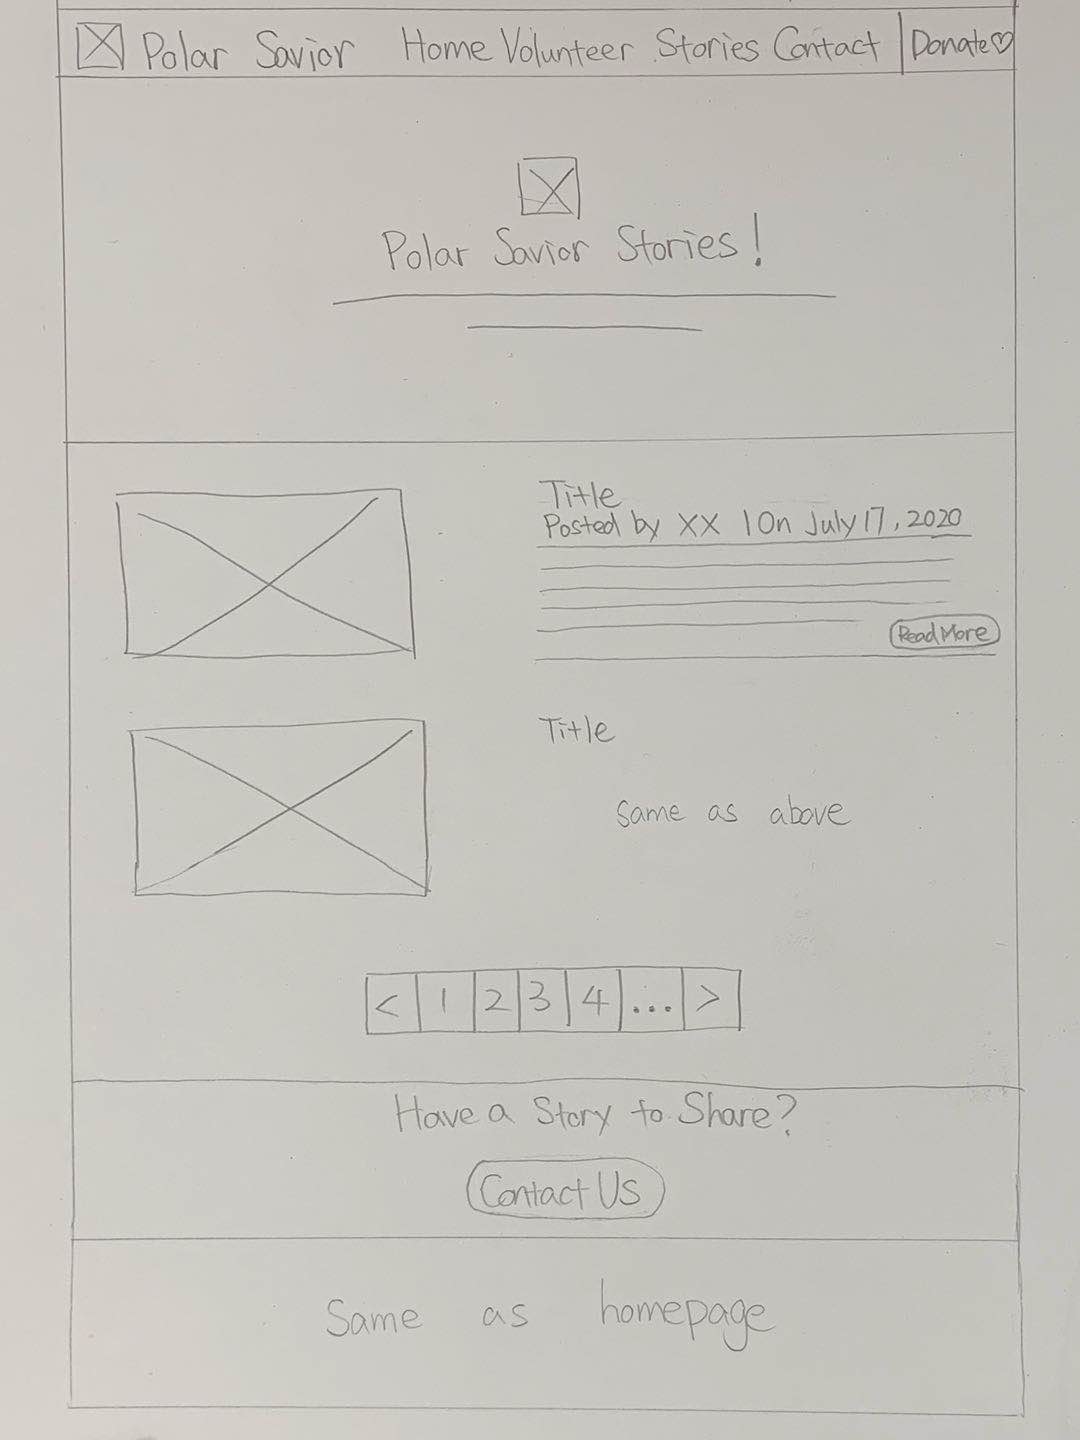 Polar Savior Home Volunteer Stories Contact Donate♡
Polar Savior Stories!
Title
Posted by XX | On July 17, 2020
Read More
Title
Same as above
< 1 2 3 4 ... >
Have a Story to Share?
Contact Us
Same as homepage